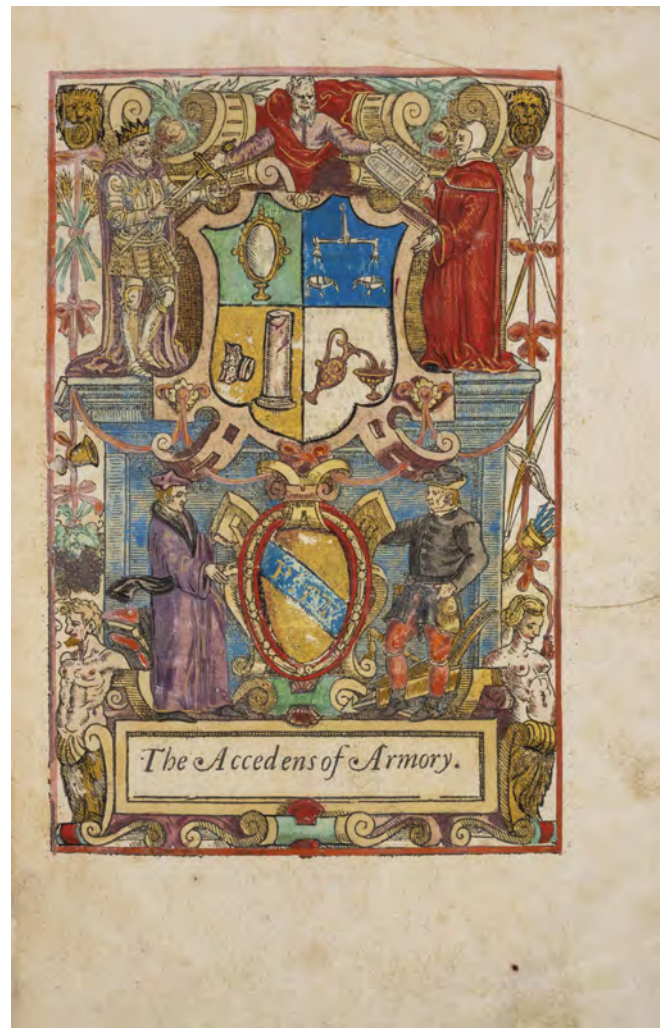 The Accedens of Armory.